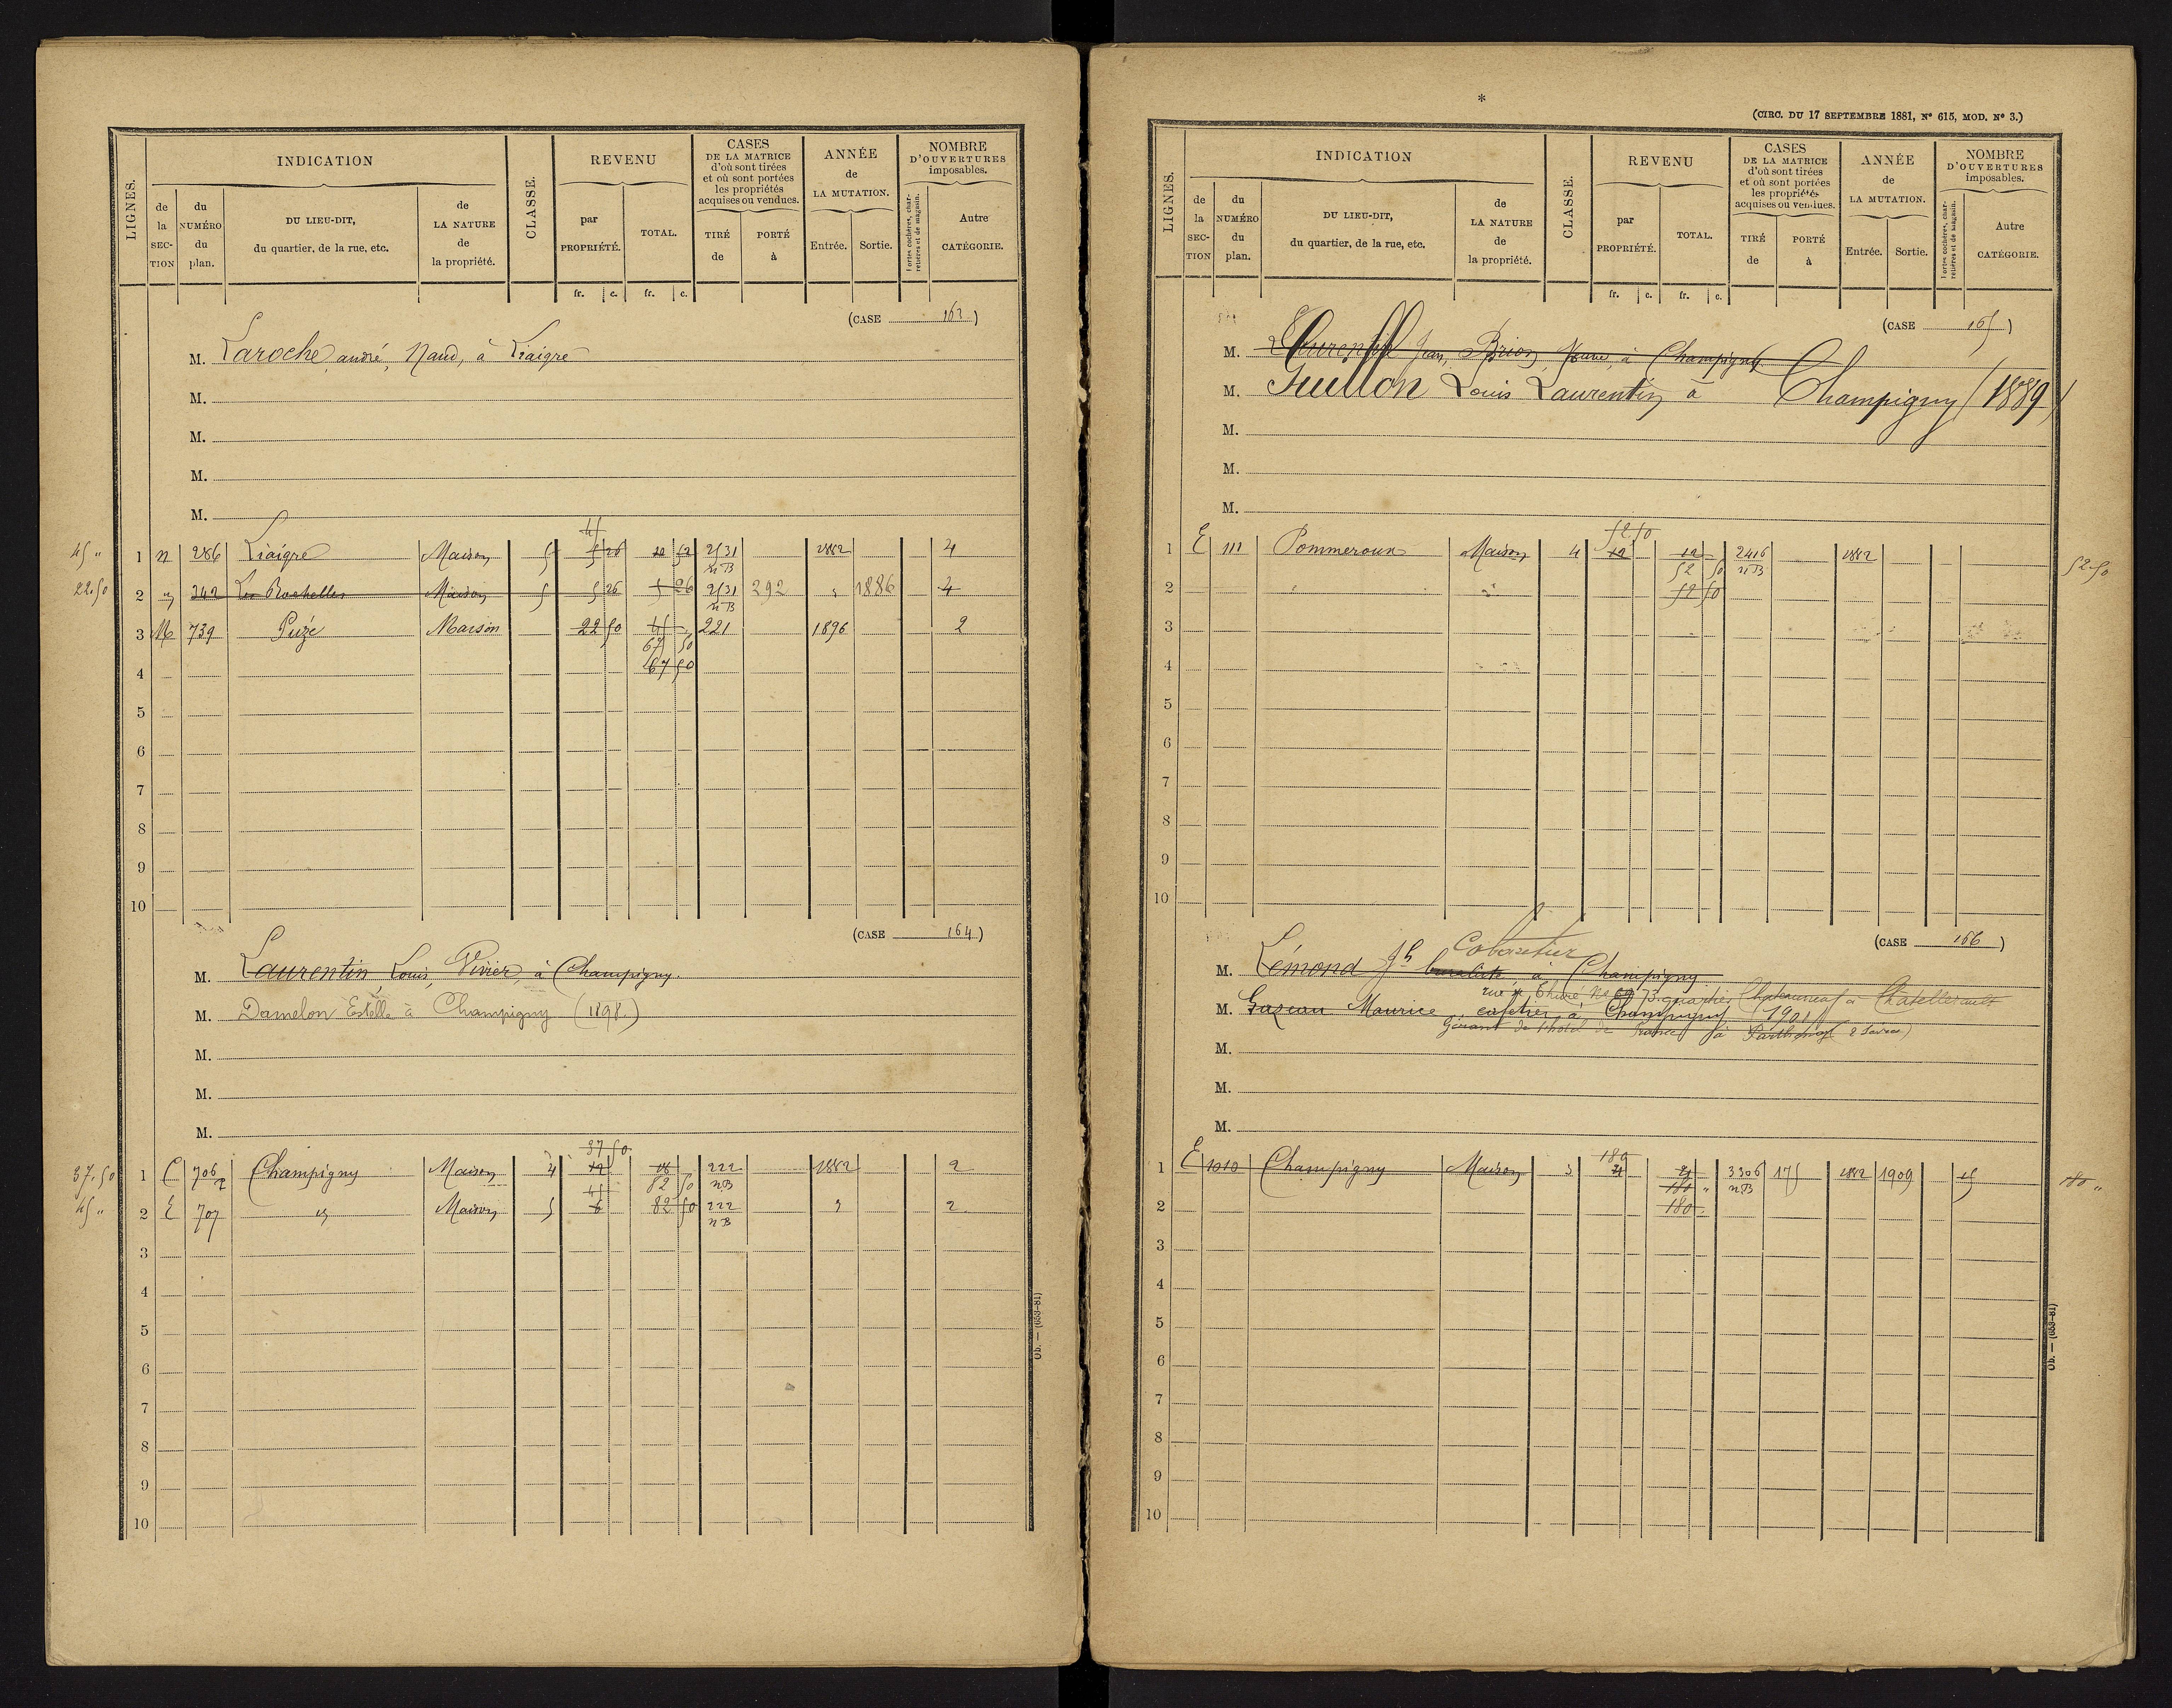 LIGNES.
INDICATION
de la SECTION
du NUMÉRO du plan.
DU LIEU-DIT, du quartier, de la rue, etc.
de LA NATURE de la propriété.
CLASSE.
REVENU
par PROPRIÉTÉ.
TOTAL.
fr. c. fr. c.
CASES DE LA MATRICE d'où sont tirées et où sont portées les propriétés acquises ou vendues.
TIRÉ de
PORTÉ à
ANNÉE de LA MUTATION.
Entrée. Sortie.
NOMBRE D'OUVERTURES imposables.
Portes cochères, charretières et de magasin.
Autre CATÉGORIE.
(CASE 163)
M. Laroche, andré, Naud, à Liaigre
M.
M.
M.
M.
45
45 " 1 n 286 Liaigre Maison 5 5 26 10 52 2531 1882 4
n B
22.50 2 " 242 Les Rochelles Maison 5 5 26 5 26 2531 292 " 1886 4
n B
3 M 739 Puzé Maison 22 50 45 " 221 1896 2
67 50
4 67 50
5
6
7
8
9
10
(CASE 164)
M. Laurentin, Louis, Vivier, à Champigny.
M. Damelon Estelle à Champigny (1898.)
M.
M.
M.
37 50
37.50 1 E 706 Champigny Maison 4 12 18 222 1882 2
45 82 50 n B
45 " 2 E 707 " Maison 5 6 82 50 222 " 2
n B
3
4
5
6
7
8
9
10
Ob. — (653-81)
*
(CIRC. DU 17 SEPTEMBRE 1881, Nº 615, MOD. Nº 3.)
LIGNES.
INDICATION
de la SECTION
du NUMÉRO du plan.
DU LIEU-DIT, du quartier, de la rue, etc.
de LA NATURE de la propriété.
CLASSE.
REVENU
par PROPRIÉTÉ.
TOTAL.
fr. c. fr. c.
CASES DE LA MATRICE d'où sont tirées et où sont portées les propriétés acquises ou vendues.
TIRÉ de
PORTÉ à
ANNÉE de LA MUTATION.
Entrée. Sortie.
NOMBRE D'OUVERTURES imposables.
Portes cochères, charretières et de magasin.
Autre CATÉGORIE.
(CASE 165)
M. Laurentin Jean, Brion, Veuve, à Champigny
M. Guillon Louis Laurentin à Champigny (1889)
M.
M.
M.
52.50
1 E 111 Pommeroux Maison 4 12 12 2416 1882 52.50
52 50 n B
2 " " 52 50
3
4
5
6
7
8
9
10
(CASE 166)
Cabaretier
M. Lémond Jh buraliste à Champigny
rue de Thuré, No 73 quartier Chateauneuf à Chatellerault
M. Gazeau Maurice, cafetier à Champigny 1901
Gérant de l'hotel de France à Parthenay 2 Sèvres)
M.
M.
M.
180
1 E 1010 Champigny Maison 3 21 21 3306 175 1882 1909 15 180 "
180 " n B
2 180 "
3
4
5
6
7
8
9
10
Ob. — (653-81)